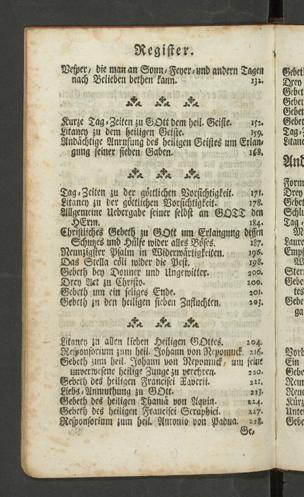 Register.
Vesper, die man an Sonn- Feyer- und andern Tagen
nach Belieben bethen kann. 132.
Kurze Tag-Zeiten zu GOtt dem heil. Geiste. 152.
Litaney zu dem heiligen Geiste. 159.
Andächtige Anrufung des heiligen Geistes um Erlan-
gung seiner sieben Gaben. 168.
Tag-Zeiten zu der göttlichen Vorsichtigkeit. 171.
Litaney zu der göttlichen Vorsichtigkeit. 178.
Allgemeine Uebergabe seiner selbst an GOTT den
HErrn. 184.
Christliches Gebeth zu GOtt um Erlangung dessen
Schutzes und Hülfe wider alles Böses. 187.
Neunzigster Psalm in Widerwärtigkeiten. 196.
Das Stella cöli wider die Pest. 198.
Gebeth bey Donner und Ungewitter. 200.
Drey Act zu Christo. 200.
Gebeth um ein seliges Ende. 201.
Gebeth zu den heiligen sieben Zuflachten. 203.
Litaney zu allen lieben Heiligen GOttes. 204.
Responsorium zum heil. Johann von Nepomuck. 216.
Gebeth zum heil. Johann von Nepomuck, um seine
unverwesene heilige Zunge zu verehren. 220.
Gebeth des heiligen Francisci Xaverii. 221.
Liebs-Anmuthung zu GOtt. 223.
Gebeth des heiligen Thomä von Aquin. 224.
Gebeth des heiligen Francisci Seraphici. 227.
Responsorium zum heil. Antonio von Padua. 228.
Ge,
Gebeth
Drey
Gebet
Gebet
Gebet
Tag-Z
Litane
And